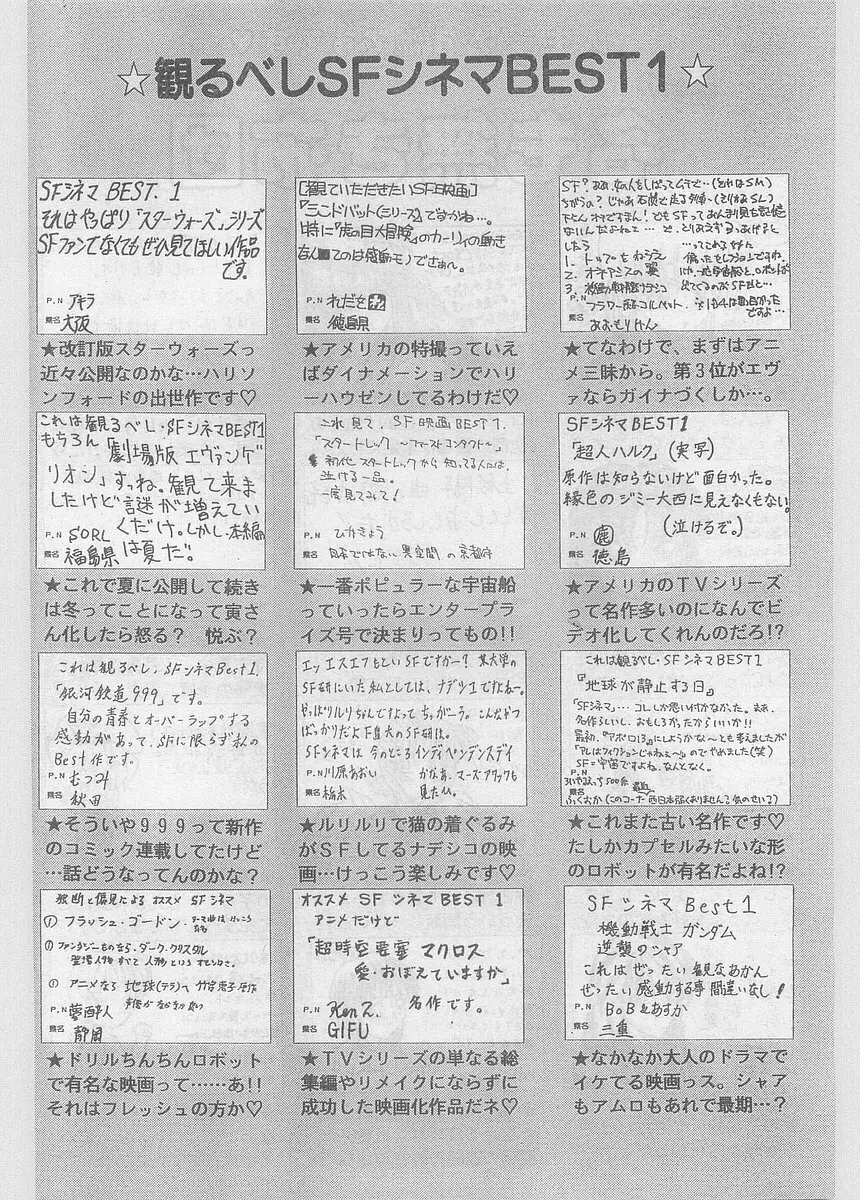 ☆観るべしSFシネマBEST1☆
SFシネマ BEST.1
それはやっぱり「スターウォーズ」シリーズ
SFファンでなくてもぜひ見てほしい作品
です。
P.N アキラ
県名 大阪
★改訂版スターウォーズっ
近々公開なのかな…ハリソ
ンフォードの出世作です♡
[観ていただきたいSF映画]
『シンドバット(シリーズ)』ですかね…。
特に『虎の目大冒険』のカーリィの動き
は感動モノでさぁ〜。
P.N れだを
県名 徳島県
★アメリカの特撮っていえ
ばダイナメーションでハリ
ーハウゼンしてるわけだ♡
SF?
したら
1. トップをねらえ
2. オネアミスの翼
3.
P.N フラワー
県名 あおもりけん
★てなわけで、まずはアニ
メ三昧から。第3位がエヴ
ァならガイナづくしか…。
これは観るべし・SFシネマBEST1
もちろん「劇場版 エヴァンゲ
リオン」すっね。観て来ま
したけど謎が増えてい
くだけ。しかし本編
は夏だ。
P.N SORL
県名 福島県
★これで夏に公開して続き
は冬ってことになって寅さ
ん化したら怒る? 悦ぶ?
これ見て、SF映画BEST1.
「スタートレック 〜ファーストコンタクト〜」
初代スタートレックから知ってる人には、
泣ける一品。
一度見てみて!
P.N ひかきょう
県名 日本ではない異空間の京都府
★一番ポピュラーな宇宙船
っていったらエンタープラ
イズ号で決まりってもの!!
SFシネマBEST1
「超人ハルク」(実写)
原作は知らないけど面白かった。
緑色のジミー大西に見えなくもない。
(泣けるぞ。)
P.N 鹿
県名 徳島
★アメリカのTVシリーズ
って名作多いのになんでビ
デオ化してくれんのだろ!?
これは観るべし、SFシネマBest1.
「銀河鉄道999」です。
自分の青春とオーバーラップする
感動があって、SFに限らず私の
Best作です。
P.N むつみ
県名 秋田
★そういや999って新作
のコミック連載してたけど
…話どうなってんのかな?
エッエスエフもといSFですかー? 某大学の
SF研にいた私としては、ナデシコですよねー。
やっぱりルリちゃんですよってちっがーう。こんなやつ
ばっかりだよ
SFシネマは今のところインディペンデンスデイ
かなあ、マーズアタックも
見たい。
P.N 川原あおい
県名 栃木
★ルリルリで猫の着ぐるみ
がSFしてるナデシコの映
画…けっこう楽しみです♡
これは観るべし・SFシネマBEST1
『地球が静止する日』
「SFシネマ」… コレしか思い付かなかった。まぁ、
名作らしいし、おもしろかったからいいか!!
最初、『アポロ13』にしようかな〜とも考えましたが
「アレはフィクションじゃねぇ〜」のでやめました(笑)
SF=宇宙ですよね、なんとなく。
P.N
県名 ふくおか
★これまた古い名作です♡
たしかカプセルみたいな形
のロボットが有名だよね!?
独断と偏見による オススメ SFシネマ
① フラッシュ・ゴードン
① ファンタジーものなら、ダーク・クリスタル
登場人物すべて人形という
① アニメなら 地球(テラ)へ 竹宮恵子原作
P.N 夢酔人
県名 静岡
★ドリルちんちんロボット
で有名な映画って……あ!!
それはフレッシュの方か♡
オススメ SFシネマBEST1
アニメだけど
「超時空要塞 マクロス
愛・おぼえていますか」
名作です。
P.N KenZ.
県名 GIFU
★TVシリーズの単なる総
集編やリメイクにならずに
成功した映画化作品だネ♡
SFシネマBest1
機動戦士ガンダム
逆襲のシャア
これはぜったい観なあかん
ぜったい感動する事間違いなし!
P.N BoB&あすか
県名 三重
★なかなか大人のドラマで
イケてる映画っス。シャア
もアムロもあれで最期…?